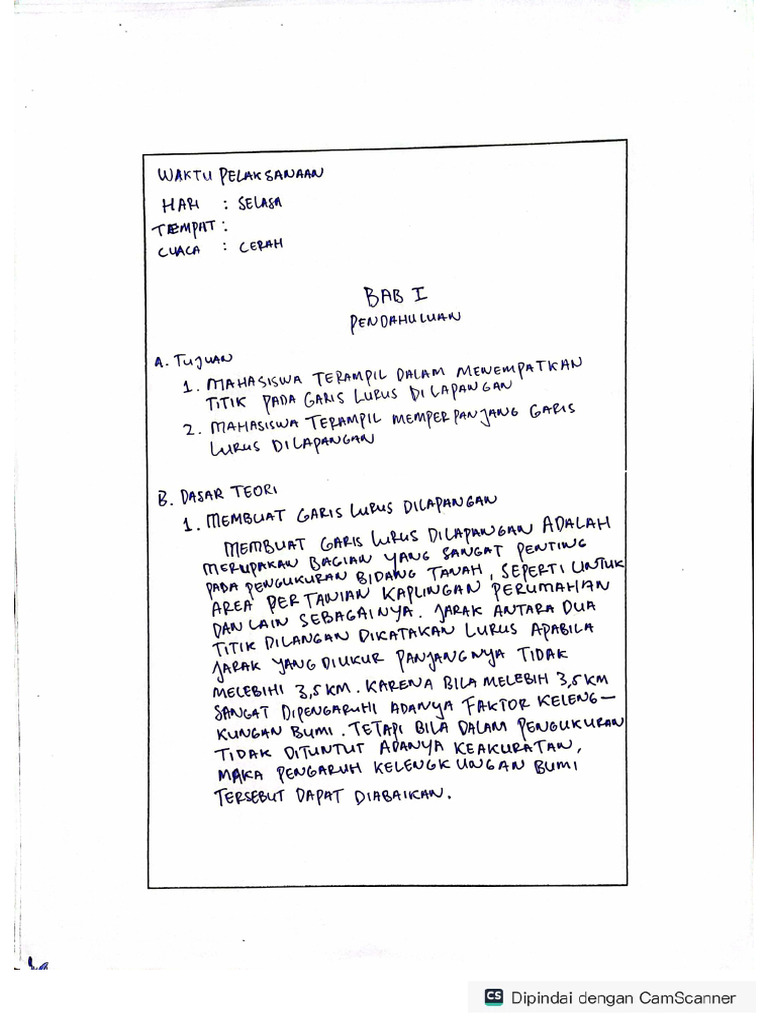 WAKTU PELAKSANAAN
HARI : SELASA
TEMPAT :
CUACA : CERAH
BAB I
PENDAHULUAN
A. TUJUAN
1. MAHASISWA TERAMPIL DALAM MENEMPATKAN
TITIK PADA GARIS LURUS DI LAPANGAN
2. MAHASISWA TERAMPIL MEMPERPANJANG GARIS
LURUS DILAPANGAN
B. DASAR TEORI
1. MEMBUAT GARIS LURUS DILAPANGAN
MEMBUAT GARIS LURUS DILAPANGAN ADALAH
MERUPAKAN BAGIAN YANG SANGAT PENTING
PADA PENGUKURAN BIDANG TANAH, SEPERTI UNTUK
AREA PERTANIAN KAPLINGAN PERUMAHAN
DAN LAIN SEBAGAINYA. JARAK ANTARA DUA
TITIK DILANGAN DIKATAKAN LURUS APABILA
JARAK YANG DIUKUR PANJANGNYA TIDAK
MELEBIHI 3,5 KM. KARENA BILA MELEBIH 3,5 KM
SANGAT DIPENGARUHI ADANYA FAKTOR KELENG-
KUNGAN BUMI. TETAPI BILA DALAM PENGUKURAN
TIDAK DITUNTUT ADANYA KEAKURATAN,
MAKA PENGARUH KELENGKUNGAN BUMI
TERSEBUT DAPAT DIABAIKAN.
CS Dipindai dengan CamScanner